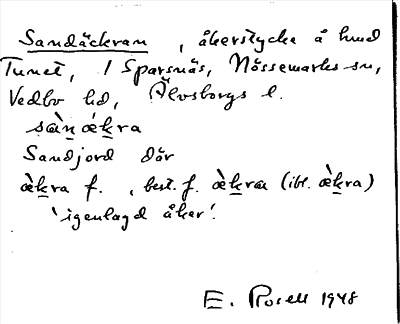 Sandäckran, åkerstycke å hmd
Tunet, 1 Sparsnäs, Nössemarks sn,
Vedbo hd, Älvsborgs l.
sàn̠ǽk̠ra
Sandjord där
æ̀k̠ra f., best. f. æ̀k̠ræ (ibl. æ̀k̠ra)
'igenlagd åker'.
E. Rosell 1948